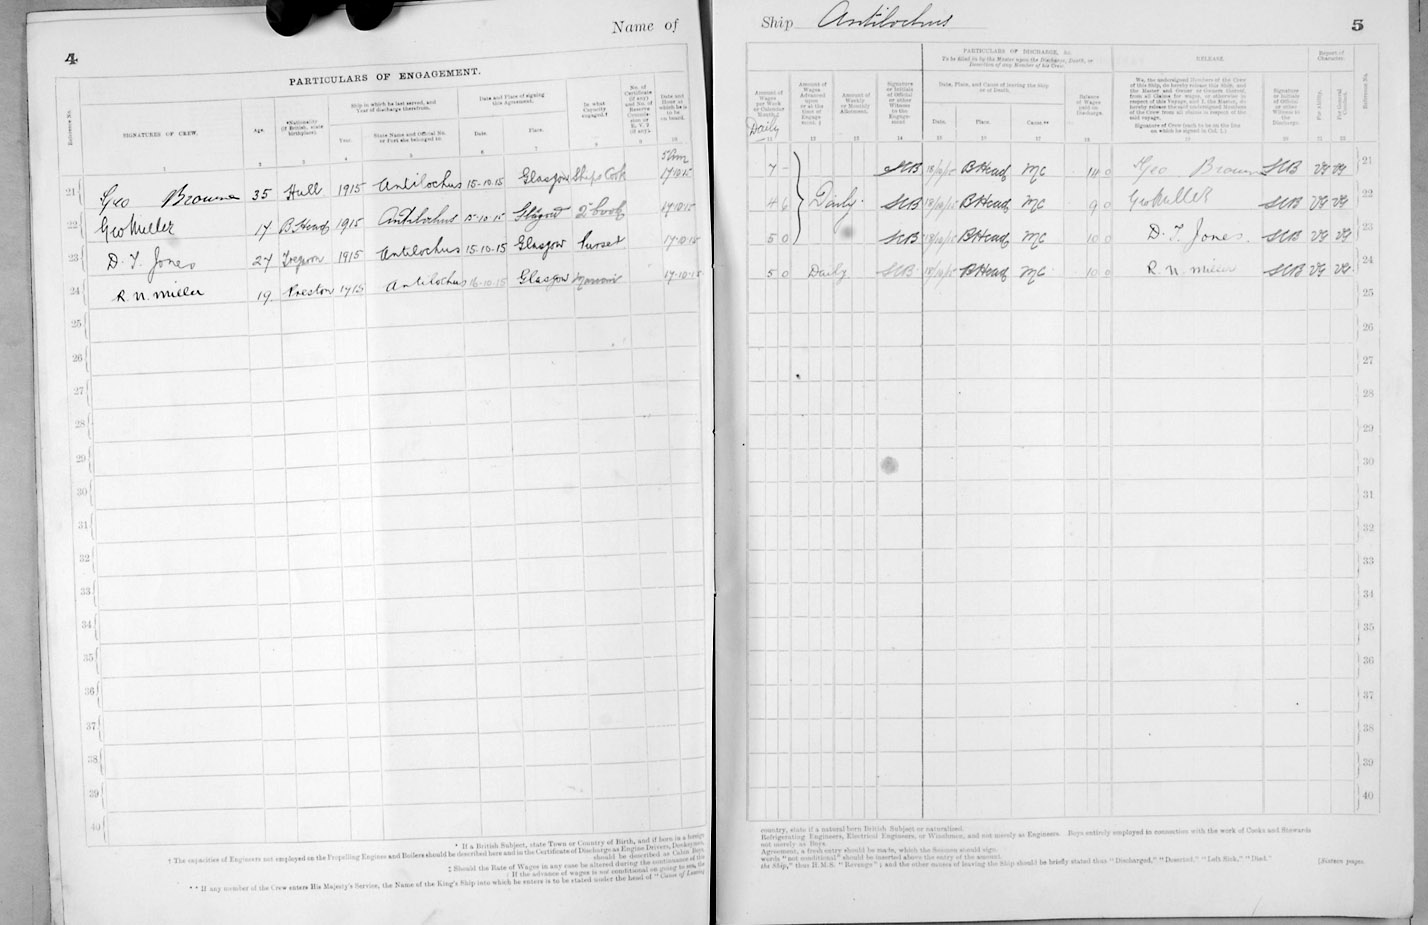 Name of
4
PARTICULARS OF ENGAGEMENT.
Reference No.
SIGNATURES OF CREW.
Age.
*Nationality (if British, state birthplace).
Ship in which he last served, and Year of discharge therefrom.
Year.
State Name and Official No. or Port she belonged to.
Date and Place of signing this Agreement.
Date.
Place.
In what Capacity engaged.†
Date and Hour at which he is to be on board.
1 2 3 4 5 6 7 8 9 10
5 am
21 Geo Browne 35 Hull 1915 Antilochus 15-10-15 Glasgow Ships Cook 17-10-15
22 Geo Miller 17 B. Head 1915 Antilochus 15-10-15 Glasgow 2d Cook 17-10-15
23 D. T. Jones 27 1915 Antilochus 15-10-15 Glasgow Purser 17-10-15
24 R. N. Miller 19 Preston 1915 Antilochus 16-10-15 Glasgow 17-10-15
25
26
27
28
29
30
31
32
33
34
35
36
37
38
39
40
* If a British Subject, state Town or Country of Birth, and if born in a foreign
† The capacities of Engineers not employed on the Propelling Engines and Boilers should be described here and in the Certificate of Discharge as Engine Drivers, Donkeymen,
should be described as Cabin Boys,
‡ Should the Rate of Wages in any case be altered during the continuance of this
If the advance of wages is not conditional on going to sea, the
** If any member of the Crew enters His Majesty's Service, the Name of the King's Ship into which he enters is to be stated under the head of "Cause of Leaving
Ship Antilochus
5
PARTICULARS OF DISCHARGE, &c.
To be filled in by the Master upon the Discharge, Death, or Desertion of any Member of his Crew.
RELEASE.
Report of Character.
Amount of Wages per Week or Calendar Month.
Daily
Amount of Wages Advanced upon or at the time of Engagement.
Amount of Weekly or Monthly Allotment.
Signature or Initials of Official or other Witness to the Engagement
Date, Place, and Cause of leaving the Ship or of Death.
Date.
Place.
Cause**
Balance of Wages paid on Discharge.
We, the undersigned Members of the Crew of this Ship, do hereby release this Ship, and the Master and Owner or Owners thereof, from all Claims for wages, or otherwise in respect of this Voyage, and I, the Master, do hereby release the said undersigned Members of the Crew from all claims in respect of the said voyage.
Signature of Crew (each to be on the line on which he signed in Col. 1.)
Signature or Initials of Official or other Witness to the Discharge.
For Ability.
For General Conduct.
Reference No.
11 12 13 14 15 16 17 18 19 20 21 22
7 - B Head MC 14 0 Geo Browne VG VG 21
4 6 Daily B Head MC 9 0 Geo Miller VG VG 22
5 0 B Head MC 10 0 D. T. Jones VG VG 23
5 0 Daily B Head MC 10 0 R. N. Miller VG VG 24
25
26
27
28
29
30
31
32
33
34
35
36
37
38
39
40
country, state if a natural born British Subject or naturalised.
Refrigerating Engineers, Electrical Engineers, or Winchmen, and not merely as Engineers. Boys entirely employed in connection with the work of Cooks and Stewards
not merely as Boys.
Agreement, a fresh entry should be made, which the Seaman should sign.
words "not conditional" should be inserted above the entry of the amount.
the Ship," thus H.M.S. "Revenge"; and the other causes of leaving the Ship should be briefly stated thus "Discharged," "Deserted," "Left Sick," "Died."
[Sixteen pages.